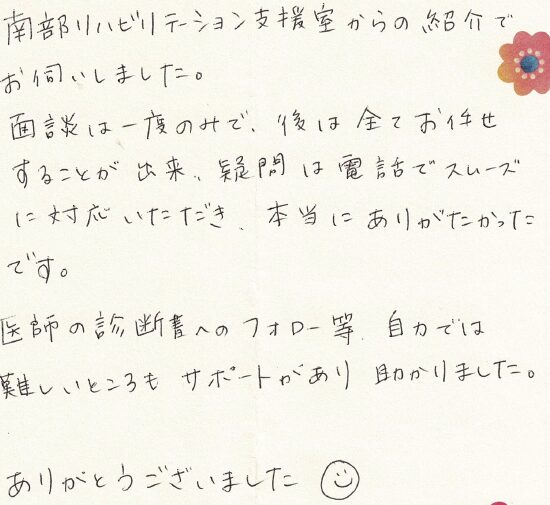 南部リハビリテーション支援室からの紹介で
お伺いしました。
面談は一度のみで、後は全てお任せ
することが出来、疑問は電話でスムーズ
に対応いただき、本当にありがたかった
です。
医師の診断書へのフォロー等、自力では
難しいところもサポートがあり助かりました。
ありがとうございました